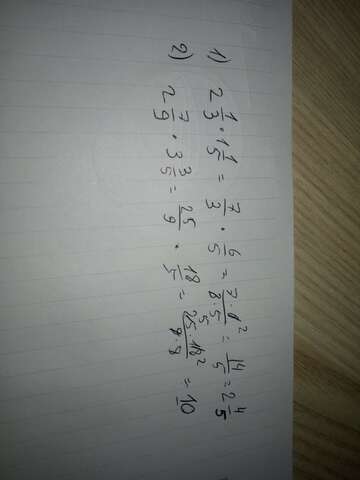 1) 2 1/3 · 1 1/5 = 7/3 · 6/5 = 7·6²/3·5 = 14/5 = 2 4/5
2) 2 7/9 · 3 3/5 = 25/9 · 18/5 = 25⁵·18²/9·5 = 10